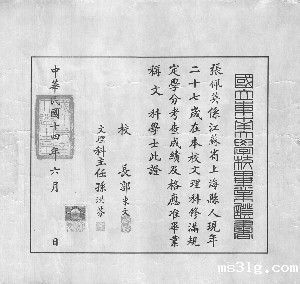 國立東南大學畢業證書
張佩英係江蘇省上海縣人現年
二十七歲在本校文理科修滿規
定學分考查成績及格應准畢業
稱文科學士此證
校長郭秉文
文理科主任孫洪芬
中華民國十四年六月 日
ms31g.com